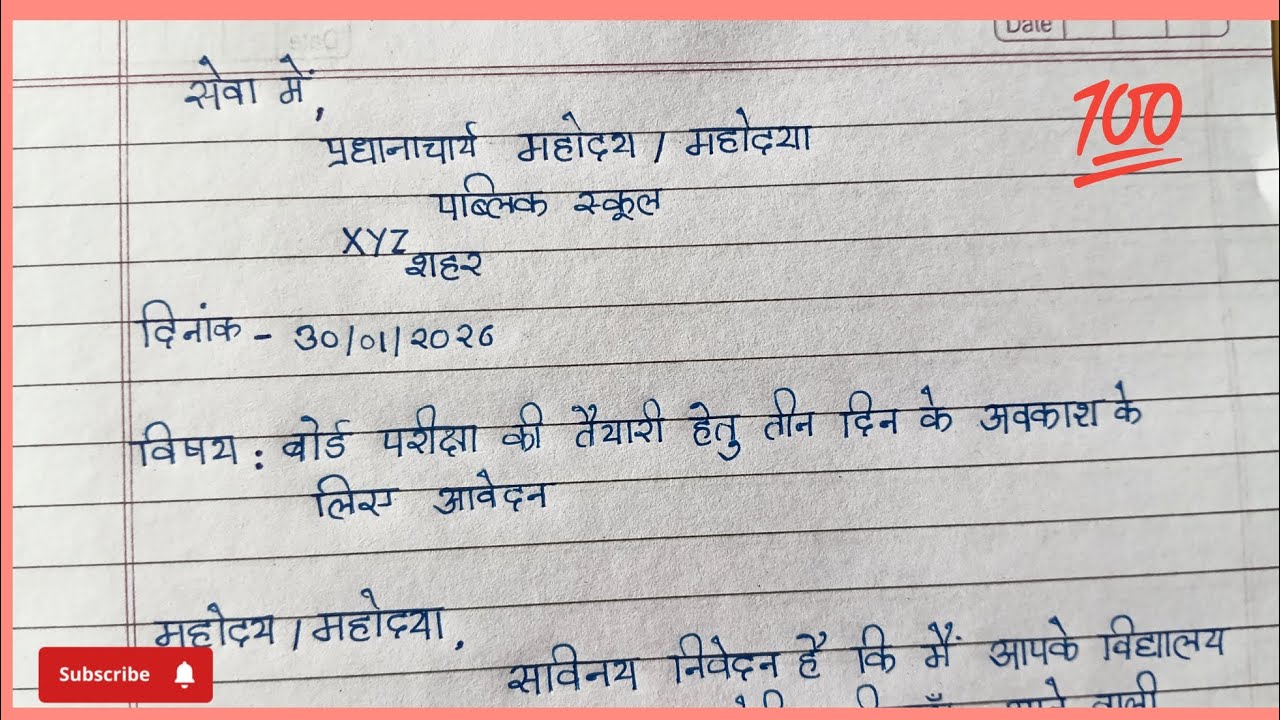 Date
सेवा में,
प्रधानाचार्य महोदय / महोदया
पब्लिक स्कूल
XYZ शहर
दिनांक - 30/01/2026
विषय : बोर्ड परीक्षा की तैयारी हेतु तीन दिन के अवकाश के
लिए आवेदन
महोदय / महोदया,
सविनय निवेदन है कि मैं आपके विद्यालय
100
Subscribe